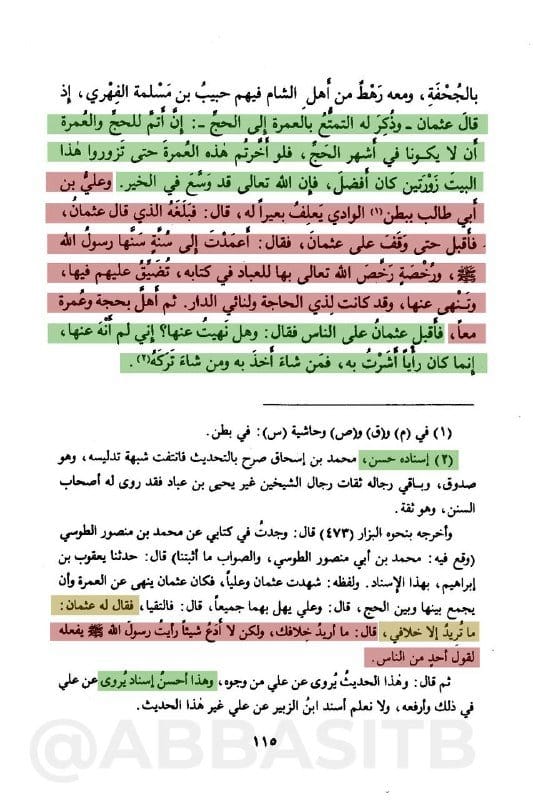 بالجُحْفَةِ، ومعه رَهْطٌ من أَهلِ الشام فيهم حبيبُ بن مَسْلمة الفِهْري، إِذ
قالَ عثمان ـ وذُكِرَ له التمتُّعُ بالعمرة إلى الحجِّ ـ: إِنَّ أَتمَّ للحجِّ والعُمرة
أَن لا يكونا في أَشهر الحَجِّ، فلو أَخَّرتُم هٰذه العُمرةَ حتى تَزوروا هٰذا
البيتَ زَوْرَتَين كان أَفضلَ، فإِن الله تعالى قد وَسَّعَ في الخير. وعليُّ بن
أَبي طالب ببطنِ(١) الوادي يَعلِفُ بعيراً له، قال: فبَلَغَهُ الذي قال عثمانُ،
فأَقبل حتى وَقَفَ على عثمانَ، فقال: أَعمَدْتَ إِلى سُنَّةٍ سَنَّها رسولُ الله
ﷺ، ورُخْصَةٍ رَخَّصَ الله تعالى بها للعباد في كتابه، تُضَيِّقُ عليهم فيها،
وتَنْهى عنها، وقد كانت لِذي الحاجة ولنائي الدار. ثم أَهلَّ بحجة وعُمرة
معاً، فأَقبل عثمانُ على الناس فقال: وهل نَهيتُ عنها؟ إِني لم أَنْهَ عنها،
إِنما كان رأياً أَشَرْتُ به، فمَن شاءَ أَخذَ به ومن شاءَ تَرَكَهُ(٢).
(١) في (م) و(ق) و(ص) وحاشية (س): في بطن.
(٢) إسناده حسن، محمد بن إسحاق صرح بالتحديث فانتفت شبهة تدليسه، وهو
صدوق، وباقي رجاله ثقات رجال الشيخين غير يحيى بن عباد فقد روى له أصحاب
السنن، وهو ثقة.
وأخرجه بنحوه البزار (٤٧٣) قال: وجدتُ في كتابي عن محمد بن منصور الطوسي
(وقع فيه: محمد بن أبي منصور الطوسي، والصواب ما أثبتنا) قال: حدثنا يعقوب بن
إبراهيم، بهذا الإسناد. ولفظه: شهدت عثمان وعلياً، فكان عثمان ينهى عن العمرة وأن
يجمع بينها وبين الحج، قال: وعلي يهل بهما جميعاً، قال: فالتقيا، فقال له عثمان:
ما تُريدُ إلا خلافي، قال: ما أريدُ خِلافك، ولكن لا أَدَعُ شيئاً رأيتُ رسولَ الله ﷺ يفعله
لقول أحدٍ من الناس.
ثم قال: وهٰذا الحديثُ يُروى عن علي من وجوه، وهٰذا أحسنُ إسناد يُروى عن علي
في ذلك وأرفعه، ولا نعلم أسند ابنُ الزبير عن علي غير هٰذا الحديث.
١١٥
@ABBASITB